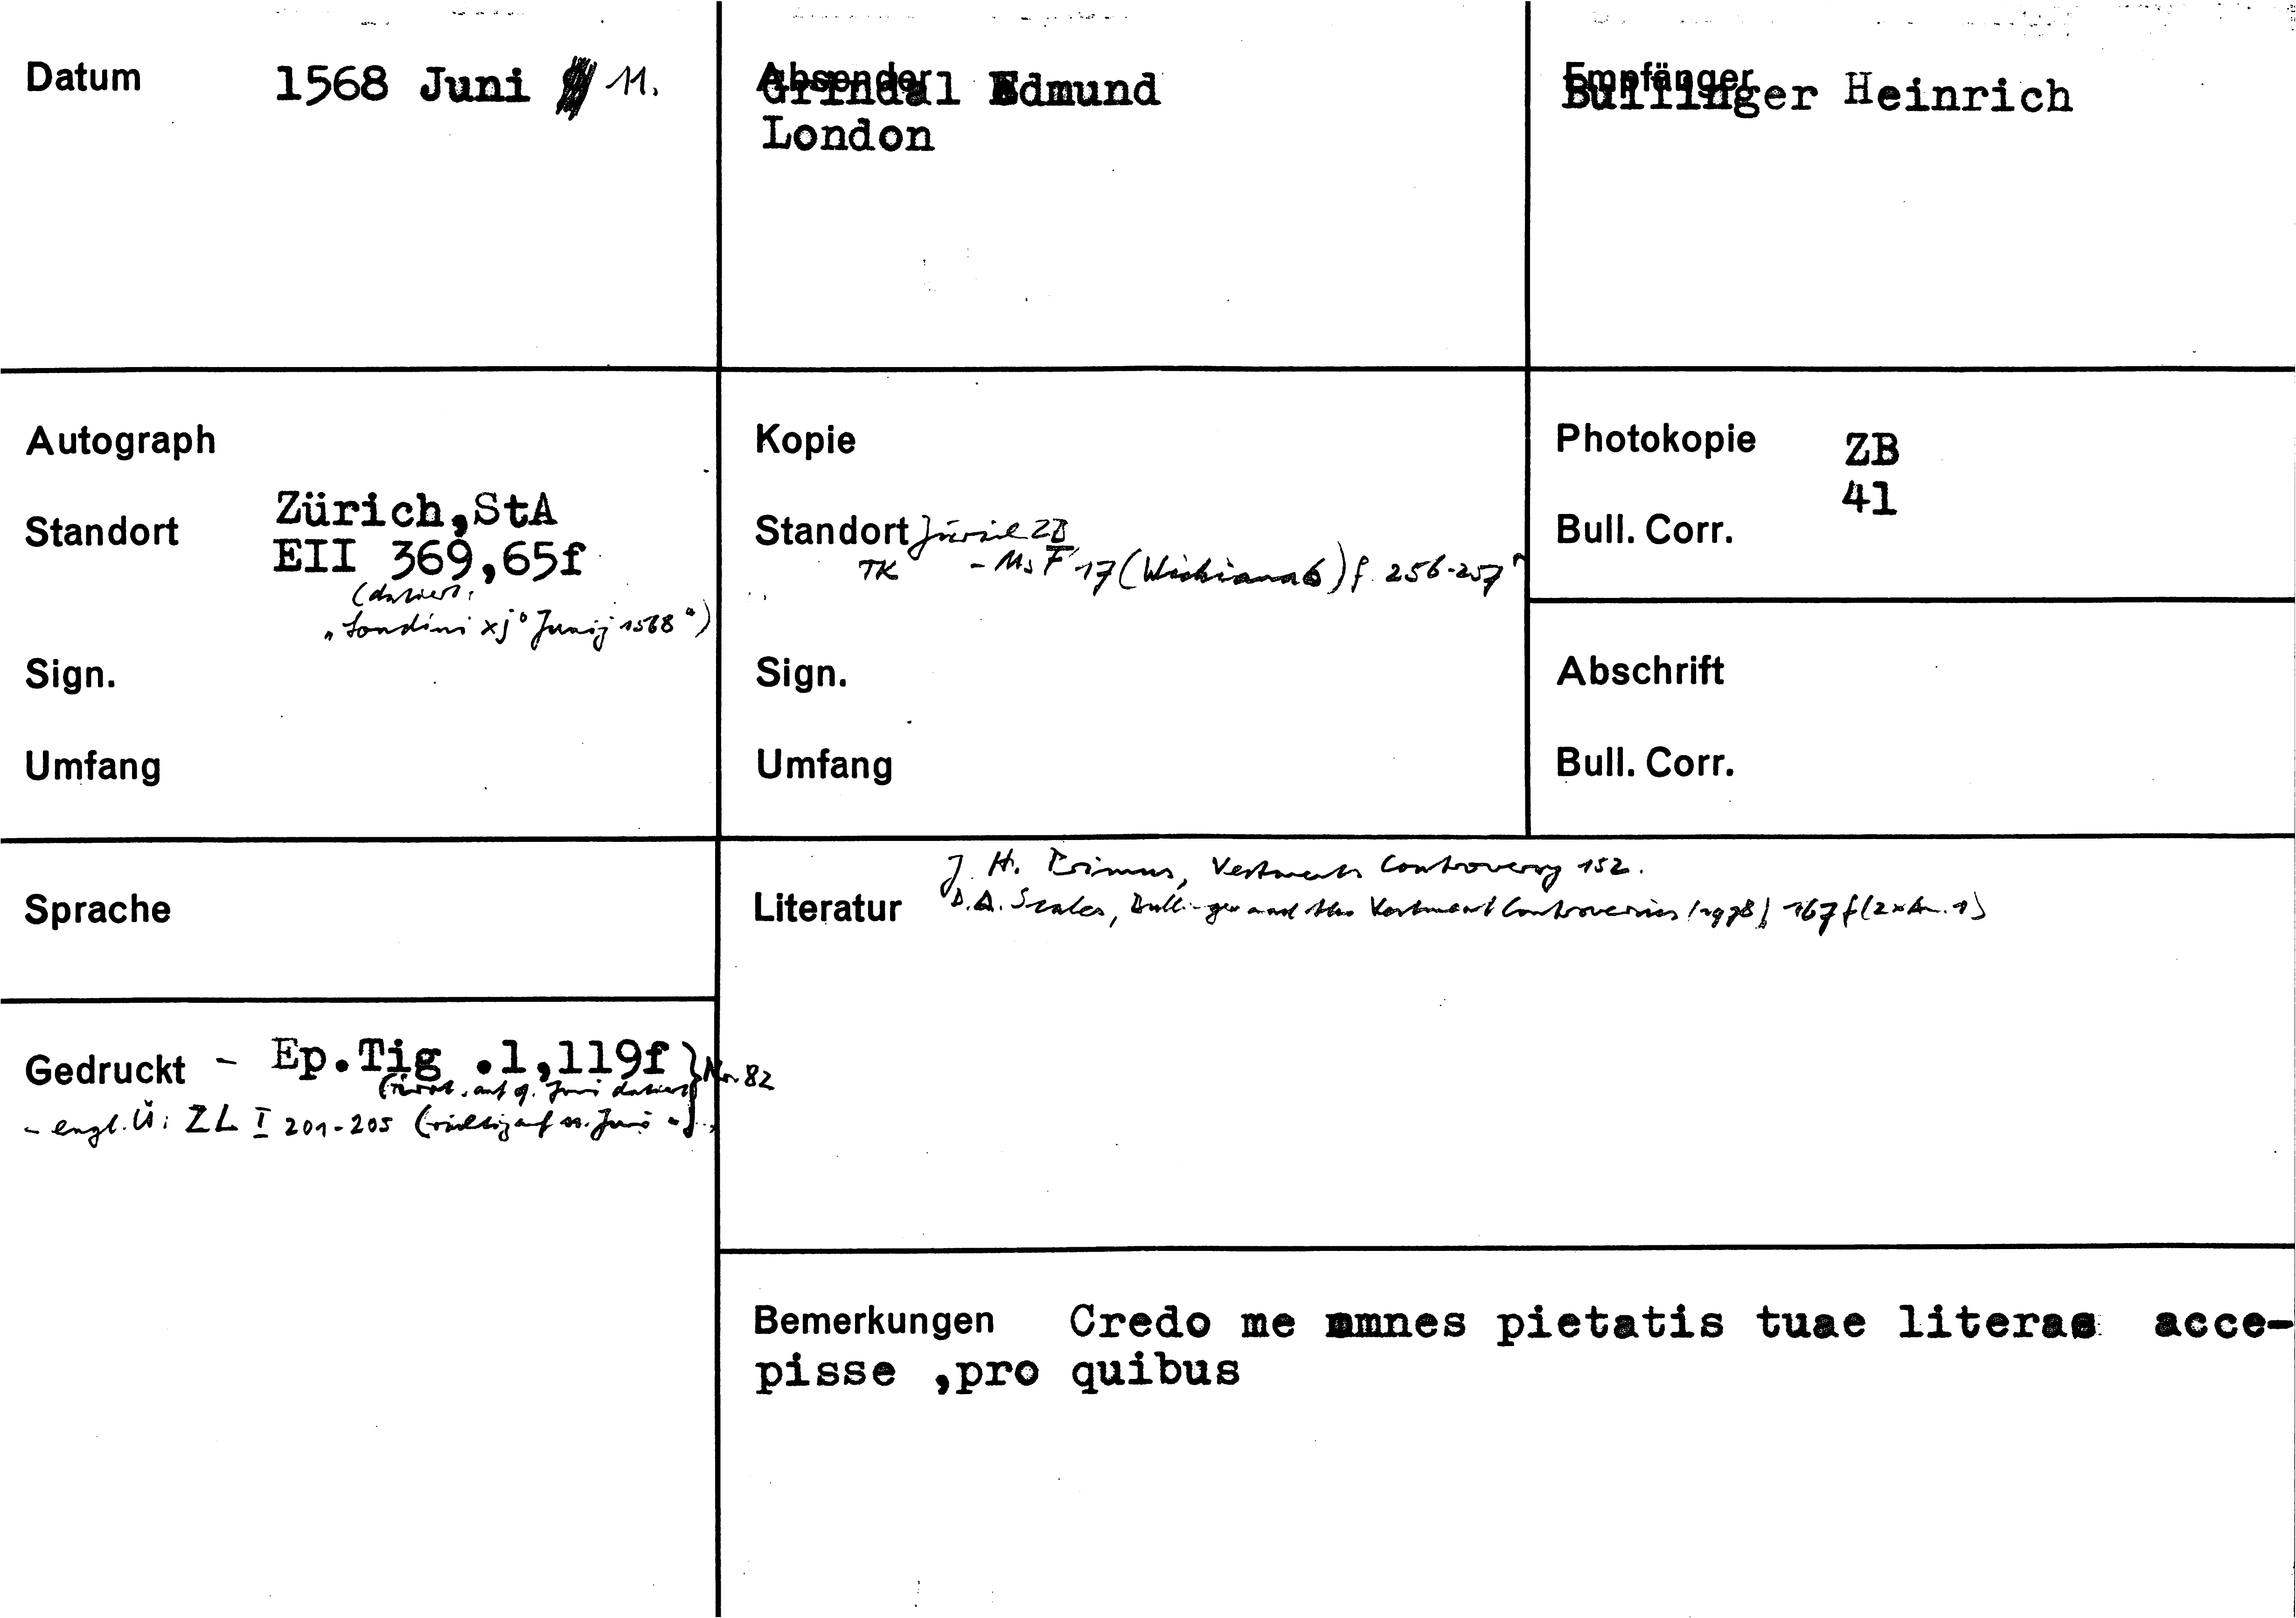 Datum 1568 Juni 11.
Absender
Grindal Edmund
London
Empfänger
Bullinger Heinrich
Autograph
Standort Zürich,StA
EII 369,65f
(datiert:
"Londini xj° Junij 1568")
Sign.
Umfang
Kopie
Standort Zürich ZB
TK - Ms F 17 (Wickiana 6) f. 256-257r
Sign.
Umfang
Photokopie ZB
41
Bull. Corr.
Abschrift
Bull. Corr.
Sprache
Literatur
J. H. Primus, Vestments Controversy 152.
D.A. Scales, Bullinger and the Vestment Controversies (1998) 167f (2x Anm. 1)
Gedruckt - Ep.Tig .1,119f } Nr. 82
auf 9. Juni datiert
- engl. Ü: ZL I 201-205 (richtig auf 11. Juni ")
Bemerkungen Credo me omnes pietatis tuae literas acce-
pisse ,pro quibus